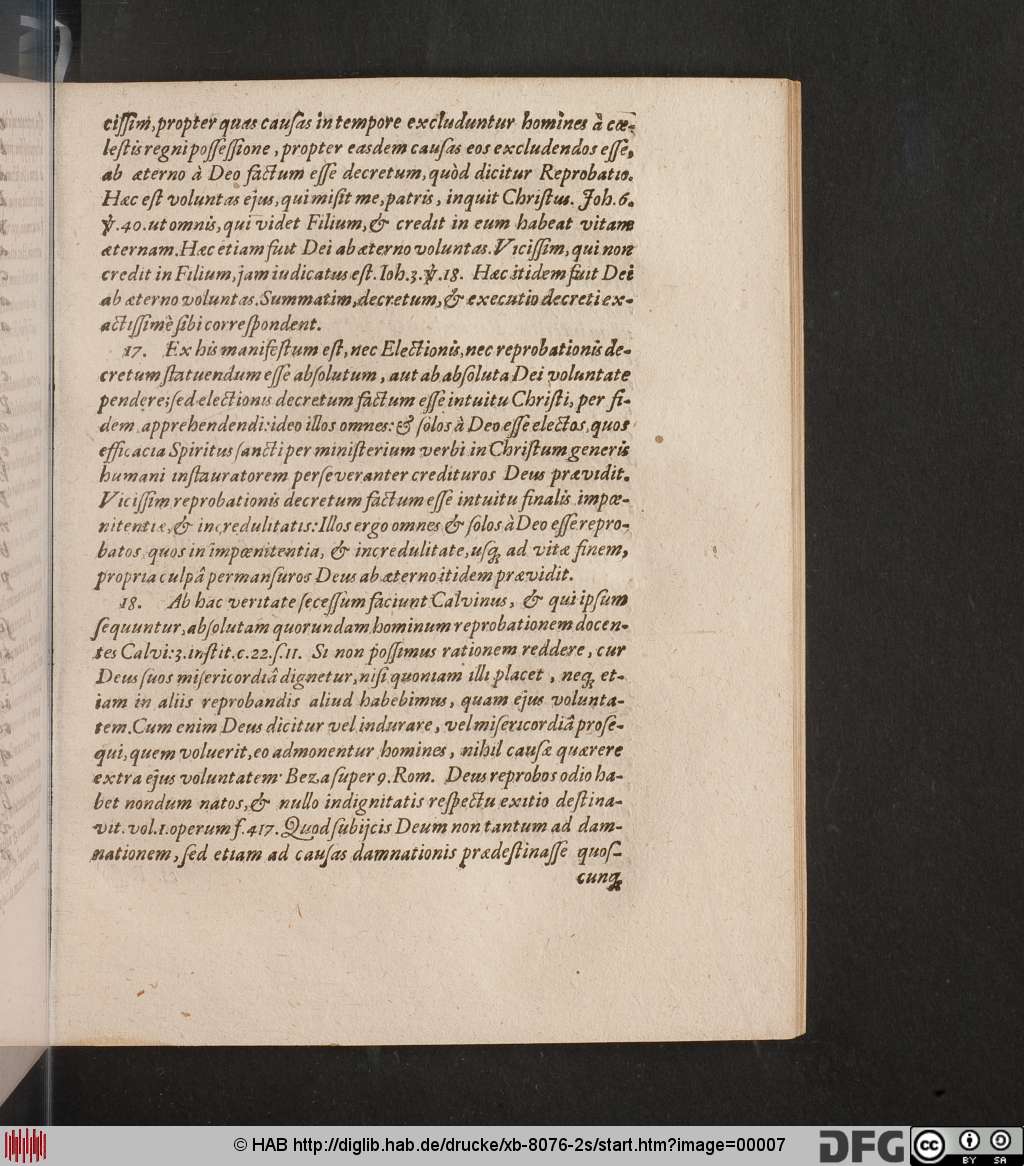 ciſſim, propter quas cauſas in tempore excluduntur homines à cœ-
leſtis regni poſſeſſione, propter easdem cauſas eos excludendos eſſe,
ab æterno à Deo factum eſſe decretum, quòd dicitur Reprobatio.
Hæc eſt voluntas ejus, qui miſit me, patris, inquit Chriſtus. Joh. 6.
℣. 40. ut omnis, qui videt Filium, & credit in eum habeat vitam
æternam. Hæc etiam fuit Dei ab æterno voluntas. Viciſſim, qui non
credit in Filium, jam iudicatus eſt. Ioh. 3. ℣. 18. Hæc itidem fuit Dei
ab æterno voluntas. Summatim, decretum, & executio decreti ex-
actiſſimè ſibi correſpondent.
17. Ex his manifeſtum eſt, nec Electionis, nec reprobationis de-
cretum ſtatuendum eſſe abſolutum, aut ab abſoluta Dei voluntate
pendere; ſed electionis decretum factum eſſe intuitu Chriſti, per fi-
dem apprehendendi: ideo illos omnes: & ſolos à Deo eſſe electos, quos
efficacia Spiritus ſancti per miniſterium verbi in Chriſtum generis
humani inſtauratorem perſeveranter credituros Deus prævidit.
Viciſſim reprobationis decretum factum eſſe intuitu finalis impœ-
nitentiæ, & incredulitatis: Illos ergo omnes & ſolos à Deo eſſe repro-
batos, quos in impœnitentia, & incredulitate, uſq; ad vitæ finem,
propria culpâ permanſuros Deus ab æterno itidem prævidit.
18. Ab hac veritate ſeceſſum faciunt Calvinus, & qui ipſum
ſequuntur, abſolutam quorundam hominum reprobationem docen-
tes Calvi: 3. inſtit. c. 22. ſ. 11. Si non poſſimus rationem reddere, cur
Deus ſuos miſericordiâ dignetur, niſi quoniam illi placet, neq; et-
iam in aliis reprobandis aliud habebimus, quam ejus volunta-
tem. Cum enim Deus dicitur vel indurare, vel miſericordiâ proſe-
qui, quem voluerit, eo admonentur homines, nihil cauſæ quærere
extra ejus voluntatem Beza ſuper 9. Rom. Deus reprobos odio ha-
bet nondum natos, & nullo indignitatis reſpectu exitio deſtina-
vit. vol. 1. operum f. 417. Quod ſubijcis Deum non tantum ad dam-
nationem, ſed etiam ad cauſas damnationis prædeſtinaſſe quoſ-
cunq;
© HAB http://diglib.hab.de/drucke/xb-8076-2s/start.htm?image=00007
DFG
cc BY SA